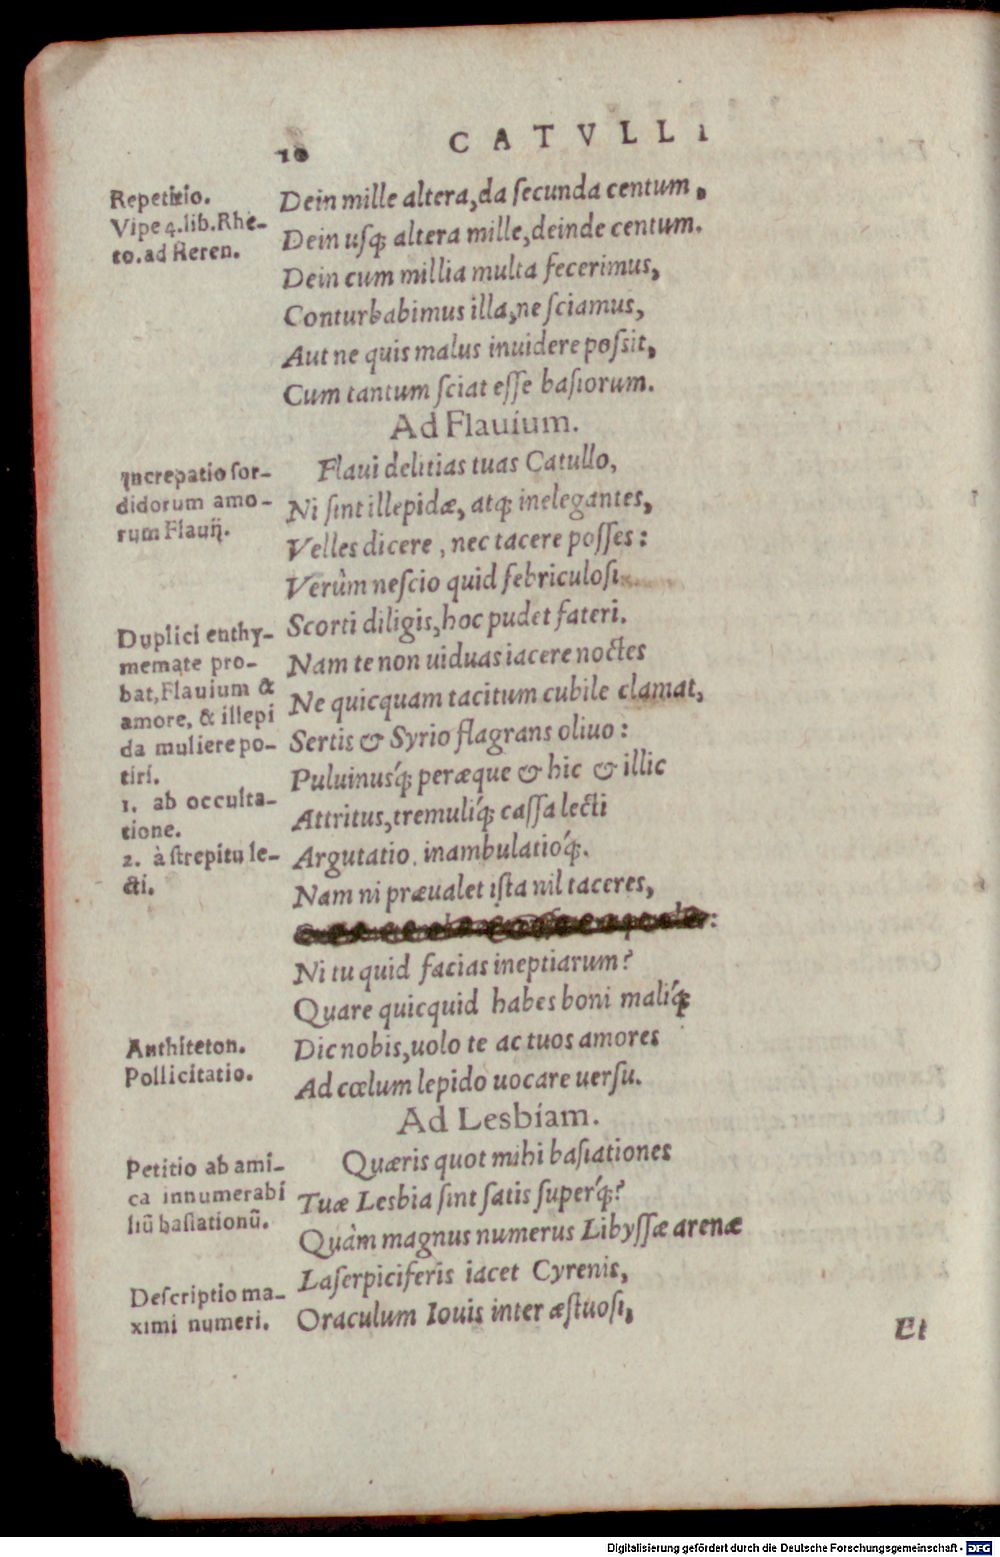 10 CATVLLI
Repetitio.
Vipe 4.lib.Rhe-
to.ad Heren.
Dein mille altera,da secunda centum,
Dein usq; altera mille,deinde centum.
Dein cum millia multa fecerimus,
Conturbabimus illa,ne sciamus,
Aut ne quis malus inuidere possit,
Cum tantum sciat esse basiorum.
Ad Flauium.
Increpatio sor-
didorum amo-
rum Flauij.
Flaui delitias tuas Catullo,
Ni sint illepidæ, atq; inelegantes,
Velles dicere, nec tacere posses:
Verùm nescio quid febriculosi
Scorti diligis,hoc pudet fateri.
Duplici enthy-
memate pro-
bat,Flauium &
amore, & illepi
da muliere po-
tiri.
1. ab occulta-
tione.
2. à strepitu le-
cti.
Nam te non uiduas iacere noctes
Ne quicquam tacitum cubile clamat,
Sertis & Syrio flagrans oliuo:
Puluinusq́; peræque & hic & illic
Attritus,tremuliq́; cassa lecti
Argutatio, inambulatioq́;.
Nam ni præualet ista nil taceres,
Ni tu quid facias ineptiarum?
Quare quicquid habes boni maliq́;
Anthiteton.
Pollicitatio.
Dic nobis,uolo te ac tuos amores
Ad cœlum lepido uocare uersu.
Ad Lesbiam.
Petitio ab ami-
ca innumerabi
liū basiationū.
Quæris quot mihi basiationes
Tuæ Lesbia sint satis superq́;?
Quàm magnus numerus Libyssæ arenæ
Descriptio ma-
ximi numeri.
Laserpiciferis iacet Cyrenis,
Oraculum Iouis inter æstuosi,
Et
Digitalisierung gefördert durch die Deutsche Forschungsgemeinschaft - DFG